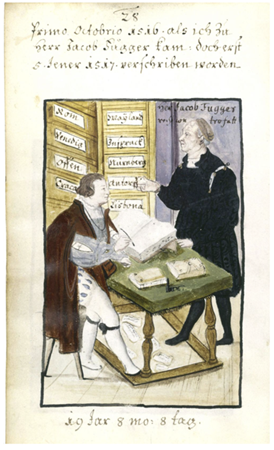 28
Primo Octobrio 1516 als ich zu
Herr Jacob Fugger kam: doch erst
5 Jener 1517 verschriben worden
Rom
Venedig
Offen
Craca
Mayland
Insprack
Nurnberg
Antorff
Lisbona
Herr Jacob Fugger
19 Jar 8 mo: 8 tag.